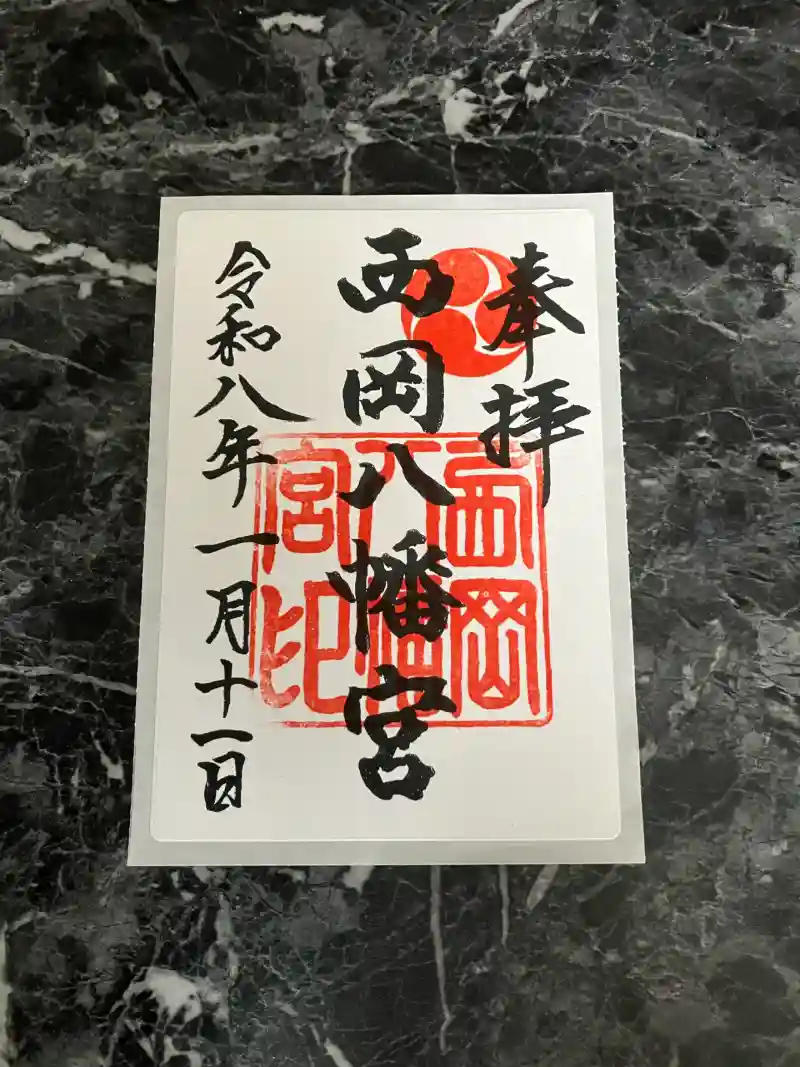 奉拝
西岡八幡宮
令和八年一月十一日
西岡八幡宮印